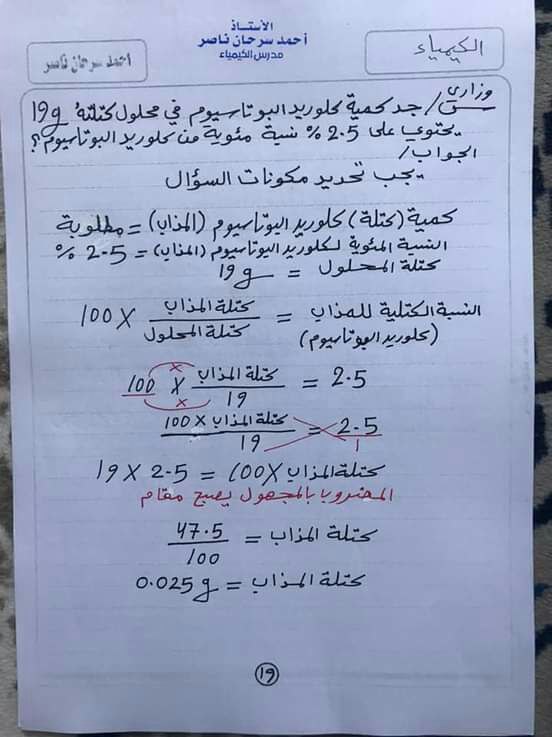 الأستاذ
أحمد سرحان ناصر
مدرس الكيمياء
الكيمياء
احمد سرحان ناصر
وزاري
س/ جد كمية كلوريد البوتاسيوم في محلول كتلته 19g
يحتوي على 2.5 % نسبة مئوية من كلوريد البوتاسيوم؟
الجواب/
يجب تحديد مكونات السؤال
كمية (كتلة) كلوريد البوتاسيوم (المذاب) = مطلوبة
النسبة المئوية لكلوريد البوتاسيوم (المذاب) = 2.5 %
كتلة المحلول = 19g
النسبة الكتلية للمذاب = كتلة المذاب / كتلة المحلول × 100
(كلوريد البوتاسيوم)
2.5 = كتلة المذاب / 19 × 100
2.5 / 1 = كتلة المذاب × 100 / 19
كتلة المذاب × 100 = 2.5 × 19
المضروب بالمجهول يصبح مقام
كتلة المذاب = 47.5 / 100
كتلة المذاب = 0.025 g
19